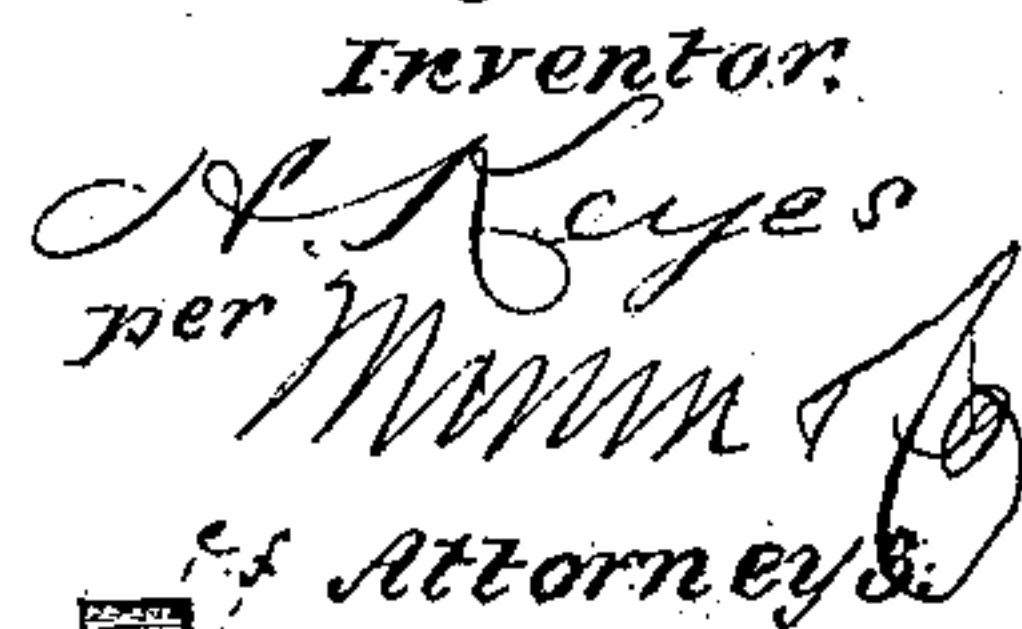 Inventor.
A. Keyes
per Munn &
e f Attorneys.